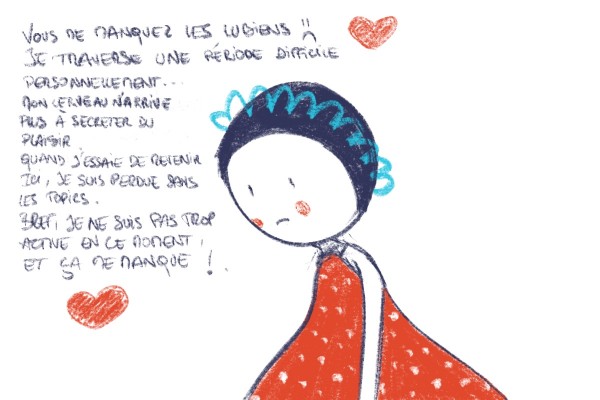 VOUS ME MANQUEZ LES LUDIENS :(
JE TRAVERSE UNE PÉRIODE DIFFICILE
PERSONNELLEMENT...
MON CERVEAU N'ARRIVE
PLUS À SECRETER DU
PLAISIR.
QUAND J'ESSAIE DE REVENIR
ICI, JE SUIS PERDUE DANS
LES TOPICS.
BREF, JE NE SUIS PAS TROP
ACTIVE EN CE MOMENT,
ET ÇA ME MANQUE !